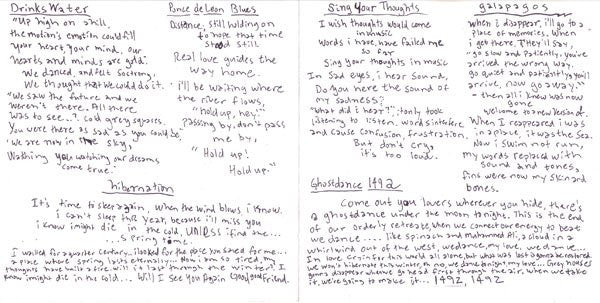 Drinks Water
"Up high on a hill,
the motion's emotion could fill
your heart, your mind. Our
hearts and minds are gold.
We danced, and felt so strong,
We thought that we could do it.
"We saw the future and we
weren't there. All there
was to see...? Cold grey squares.
You were there as sad as you could be,
we are now in the sky,
Watching you watching our dreams
come true.
Ponce de Leon Blues
Distance, still holding on
to hope that time
stood still
Real love guides the
way home.
i'll be waiting where
the river flows,
"hold up, hey,"
passing by, don't pass
me by,
"Hold up!
Hold up."
hibernation
It's time to sleep again, when the wind blows i know.
i can't sleep this year, because i'll miss you
i know i might die in the cold, UNLESS i find the...
...spring time.
I waited for a quarter century... i looked for the place you saved for me...
a place where spring lasts eternally... Now i am so tired, my
thoughts have built a fire. Will it last through the winter? I
know i might die in the cold... Will I See You Again Good good friend.
Sing Your Thoughts
I wish thoughts would come
in music
Words i have, have failed me
so far
Sing your thoughts in music
In Sad eyes, i hear sound,
Do you hear the sound of
my sadness?
"What did i hear?", it only took
listening to listen. words interfere
and cause confusion, frustration.
But don't cry,
it's too loud.
galapagos
when i disappear, i'll go to a
place of memories. When
i get there, They'll say,
"go slow and patiently, you've
arrived the wrong way.
go quiet and patiently you'll
arrive, now go away."
- then all i knew was now
gone
welcome to a new version of.
When I reappeared i was
in a place, it was the Sea.
Now i swim not run,
my words replaced with
sound and tones,
fins were now my skin and
bones.
Ghostdance 1492
Come out you lovers wherever you hide, there's
a ghostdance under the moon tonight. This is the end
of our orderly retrease, when we connect our energy to beat
we dance.... like Spinach and Muhammed Ali, a cloud in a
whirlwind out of the west, we dance, my love, we dance...
I'm love. Cryin for this world all alone, but what was lost is gonna be restored.
We won't hibernate this winter, no no, we dance tonight my love... Grey horses
gonna disappear when we go head first through the air, when we take
it, we're going to make it... 1492, 1492